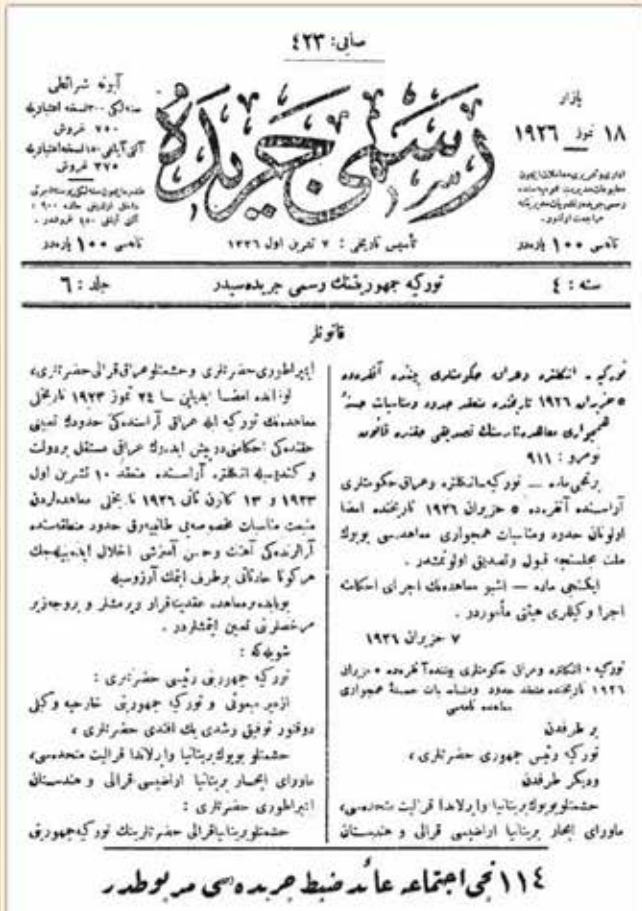 صایی: ٤٢٣
بازار
١٨ تموز ١٩٢٦
اداری و تحریری معاملات ایچون
مطبوعات مدیریت عمومیه‌سنده
رسمی جریده و نشریات مدیریتنه
مراجعت اولنور.
نسخه‌سی ١٠٠ پاره‌در
رسمی جریده
تأسیس تاریخی : ٧ تشرین اول ١٣٣٦
آبونه شرائطی
سنه‌لكی ٣٠٠ نسخه اعتباریله
٧٥٠ غروش
آلتی آیلغی ١٥٠ نسخه اعتباریله
٣٧٥ غروش
نسخه‌سی ١٠٠ پاره‌در
سنه : ٤
توركیه جمهوریتنك رسمی جریده‌سیدر
جلد : ٦
قانونلر
توركیه ـ انكلتره وعراق حكومتلری بیننده آنقره‌ده
٥ حزیران ١٩٢٦ تاریخنده منعقد حدود ومناسبات حسنهٔ
همجواری معاهده‌نامه‌سنك تصدیقی حقنده قانون
نومرو : ٩١١
برنجی ماده — توركیه ـ انكلتره وعراق حكومتلری
آراسنده آنقره‌ده ٥ حزیران ١٩٢٦ تاریخنده امضا
اولونان حدود ومناسبات همجواری معاهده‌سی بویوك
ملت مجلسنجه قبول وتصدیق اولونمشدر .
ایكنجی ماده — اشبو معاهده‌نك اجرای احكامنه
اجرا وكیللری هیئتی مأموردر .
٧ حزیران ١٩٢٦
توركیه ، انكلتره وعراق حكومتلری بیننده آنقره‌ده ٥ حزیران
١٩٢٦ تاریخنده منعقد حدود ومناسبات حسنهٔ همجواری
معاهده نامه‌سی
بر طرفدن
توركیه رئیس جمهوری حضرتلری ،
ودیكر طرفدن
حشمتلو بویوك بریتانیا وایرلاندا قرالیت متحده‌سی،
ماورای ابحار بریتانیا اراضیسی قرالی و هندستان
ایمپراطوری حضرتلری وحشمتلو عراق قرالی حضرتلری،
لوزانده امضا ایدیلن ٢٤ تموز ١٩٢٣ تاریخلی
معاهده‌نك توركیه ایله عراق آراسنده‌كی حدودك تعیینی
حقنده‌كی احكامنی درپیش ایده‌رك عراقی مستقل بر دولت
و كندوسیله انكلتره آراسنده منعقد ١٠ تشرین اول
١٩٢٢ و ١٣ كانون ثانی ١٩٢٦ تاریخلی معاهده‌لردن
منبعث مناسبات مخصوصه‌یی طانییه‌رق حدود منطقه‌سنده
آرالرنده‌كی آهنك وحسن آمیزشی اخلال ایده‌بیله‌جك
هر كونا حادثاتی برطرف ایتمك آرزوسیله
بو بابده بر معاهده عقدینه قرار ویرمشلر و بروجه زیر
مرخصلرنی تعیین ایتمشلردر .
شویله‌كه :
توركیه جمهوریتی رئیسی حضرتلری :
ازمیر مبعوثی و توركیه جمهوریتی خارجیه وكیلی
دوقتور توفیق رشدی بك افندی حضرتلری ،
حشمتلو بویوك بریتانیا وایرلاندا قرالیت متحده‌سی،
ماورای ابحار بریتانیا اراضیسی قرالی و هندستان
ایمپراطوری حضرتلری :
حشمتلو بریتانیا قرالی حضرتلرینك توركیه جمهوریتی
١١٤ نجی اجتماعه عائد ضبط جریده‌سی مربوطدر